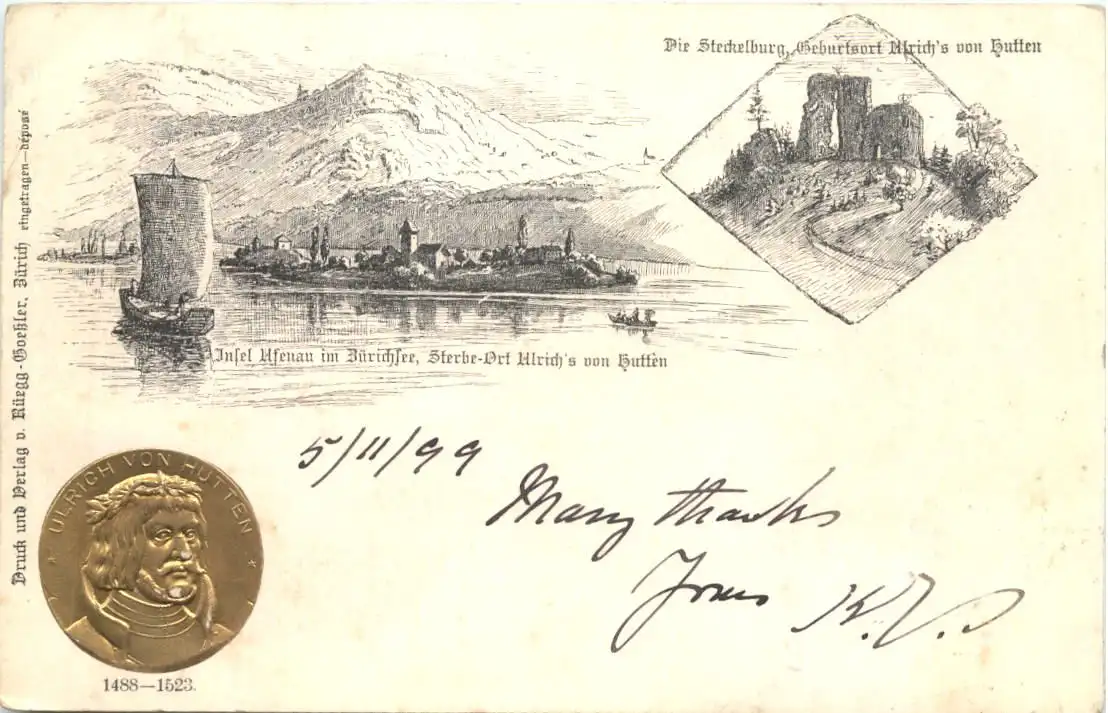 Die Steckelburg, Geburtsort Ulrich's von Hutten
Insel Ufenau im Zürichsee, Sterbe-Ort Ulrich's von Hutten
Druck und Verlag v. Rüegg-Goeßler, Zürich eingetragen—déposé
ULRICH VON HUTTEN
1488—1523.
5/11/99
Many thanks
Yours